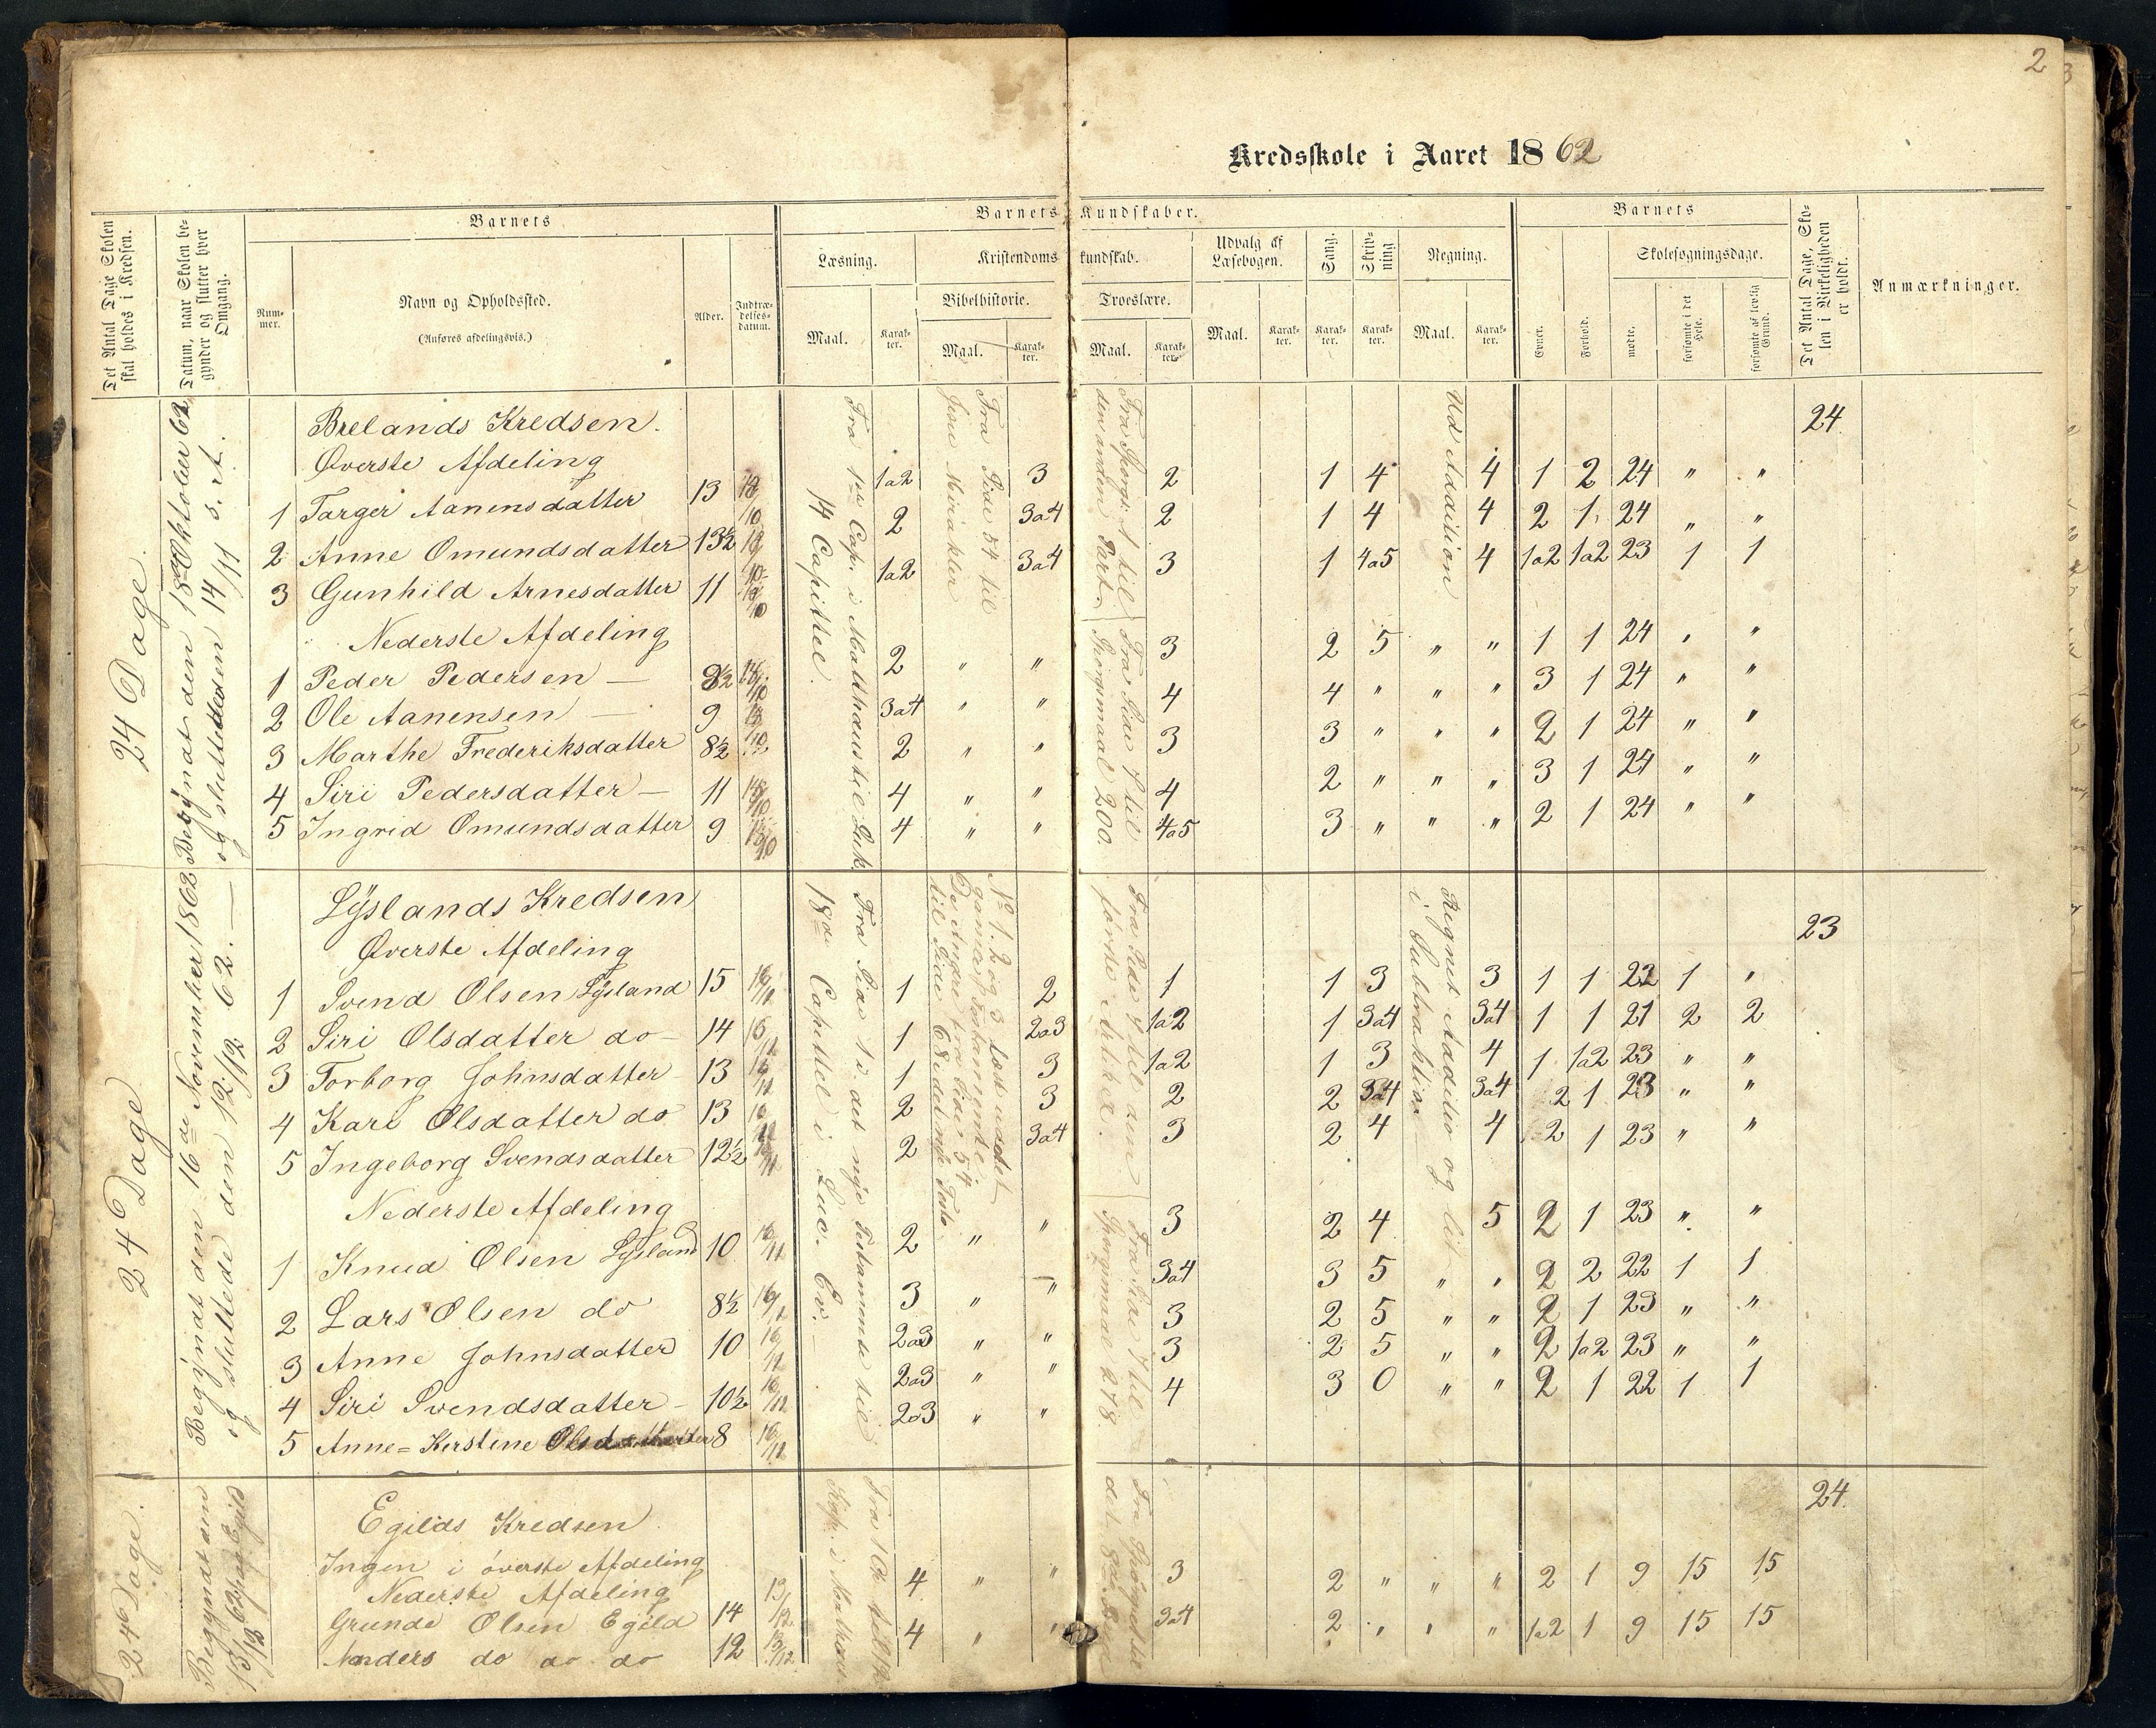 2
Kredsskole i Aaret 1862
Det Antal Dage Skolen skal holdes i Kredsen.
Datum, naar Skolen begynder og slutter hver Omgang.
Barnets
Nummer.
Navn og Opholdssted.
(Anføres afdelingsvis.)
Alder.
Indtrædelsesdatum.
Barnets Kundskaber.
Læsning.
Maal.
Karakter.
Kristendomskundskab.
Bibelhistorie.
Maal.
Karakter.
Troeslære.
Maal.
Karakter.
Udvalg af Læsebogen.
Maal.
Karakter.
Sang.
Karakter.
Skrivning
Karakter.
Regning.
Maal.
Karakter.
Barnets
Evner.
Forhold.
Skolesøgningsdage.
mødte.
forsømte i det Hele.
forsømte af lovlig Grund.
Det Antal Dage, Skolen i Virkeligheden er holdt.
Anmærkninger.
24 Dage.
Begÿndt den 18de Oktober 62
og sluttede den 14/11 s. A.
Fra 1ste Cap. i Matthæus til Luk.
14 Capittel.
Fra Side 54 til
Jesu Mirakler
Fra Spørgs. 1 til
den anden Part
Fra Side 7 til
Spørgsmaal 200.
Ud Addition
Brelands Kredsen. 24
Øverste Afdeling
1 Targer Aanensdatter 13 18/10 1a2 3 2 1 4 4 1 2 24 " "
2 Anne Omundsdatter 13½ 18/10 2 3a4 2 1 4 4 2 1 24 " "
3 Gunhild Arnesdatter 11 18/10 1a2 3a4 3 1 4a5 4 1a2 1a2 23 1 1
Nederste Afdeling
1 Peder Pedersen — 8½ 18/10 2 " " 3 2 5 " " 1 1 24 " "
2 Ole Aanensen — 9 18/10 3a4 " " 4 4 " " " 3 1 24 " "
3 Marthe Frederiksdatter 8½ 18/10 2 " " 3 3 " " " 2 1 24 " "
4 Siri Pedersdatter — 11 18/10 4 " " 4 2 " " " 3 1 24 " "
5 Ingrid Omundsdatter 9 18/10 4 " " 4a5 3 " " " 2 1 24 " "
24 Dage
Begÿndt den 16de November 1862
og sluttede den 12/12 62. —
Fra Side 1 i det nye Testamente til
18de Capittel i Luc. Ev. —
No 1, 2 og 3 læst ud det
gamle Testamente
De Andre fra Side 54
til Side 68 i det nye Testa
Fra Side 7 til den
første Artikel.
Fra Side 7 til
Spørgsmaal 278.
Regnet Additio og lit
i Subtraktion
Lÿslands Kredsen 23
Øverste Afdeling
1 Svend Olsen Lÿsland 15 16/11 1 2 1 1 3 3 1 1 22 1 "
2 Siri Olsdatter do — 14 16/11 1 2a3 1a2 1 3a4 3a4 1 1 21 2 2
3 Torborg Johnsdatter 13 16/11 1 3 1a2 1 3 4 1 1a2 23 " "
4 Kari Olsdatter do 13 16/11 2 3 2 2 3a4 3a4 2 1 23 " "
5 Ingeborg Svendsdatter 12½ 16/11 2 3a4 3 2 4 4 2 1 23 " "
Nederste Afdeling
1 Knud Olsen Lÿsland 10 16/11 2 " " 3 2 4 5 2 1 23 " "
2 Lars Olsen do 8½ 16/11 3 " " 3a4 3 5 " " 2 2 22 1 1
3 Anne Johnsdatter 10 16/11 2a3 " " 3 2 5 " " 2 1 23 " "
4 Siri Svendsdatter — 10½ 16/11 2a3 " " 3 2 5 " " 2 1a2 23 " "
5 Anne=Kirstine Olsdatter 8 16/11 2a3 " " 4 3 0 " " 2 1 22 1 1
24 Dage.
Begyndt den
13/12 62 paa Egild
Egilds Kredsen 24
Ingen i øverste Afdeling
Nederste Afdeling
Grunde Olsen Egild 14 13/12 4 " " 3 2 " " " 2 1 9 15 15
Anders do do do 12 13/12 4 " " 3a4 2 " " " 1a2 1 9 15 15